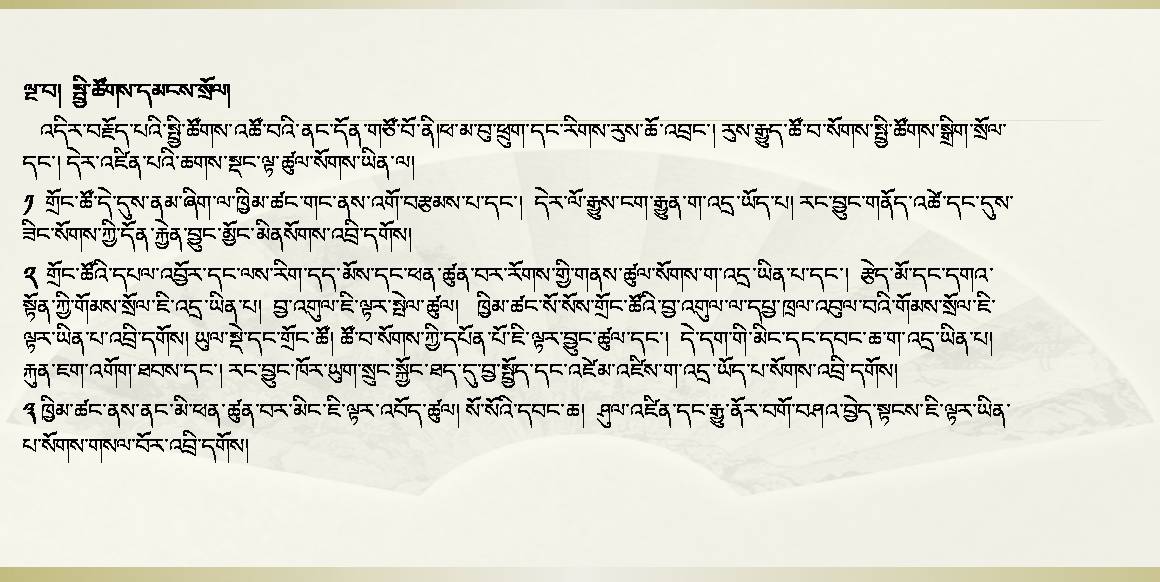 ལྔ་བ། སྤྱི་ཚོགས་དམངས་སྲོལ།
འདིར་བརྗོད་པའི་སྤྱི་ཚོགས་འཚོ་བའི་ནང་དོན་གཙོ་བོ་ནི།ཕ་མ་བུ་ཕྲུག་དང་རིགས་རུས་ཚོ་འབྲང་། རུས་རྒྱུད་ཚོ་བ་སོགས་སྤྱི་ཚོགས་སྒྲིག་སྲོལ་
དང་། དེར་འཛིན་པའི་ཆགས་སྡང་ལྟ་ཚུལ་སོགས་ཡིན་ལ།
༡ གྲོང་ཚོ་དེ་དུས་ནམ་ཞིག་ལ་ཁྱིམ་ཚང་གང་ནས་འགོ་བརྩམས་པ་དང་། དེར་ལོ་རྒྱུས་ངག་རྒྱུན་ག་འདྲ་ཡོད་པ། རང་བྱུང་གནོད་འཚེ་དང་དུས་
ཟིང་སོགས་ཀྱི་དོན་རྐྱེན་བྱུང་མྱོང་མིནསོགས་འབྲི་དགོས།
༢ གྲོང་ཚོའི་དཔལ་འབྱོར་དང་ལས་རིག་དད་མོས་དང་ཕན་ཚུན་བར་རོགས་ཀྱི་གནས་ཚུལ་སོགས་ག་འདྲ་ཡིན་པ་དང་། རྩེད་མོ་དང་དགའ་
སྟོན་ཀྱི་གོམས་སྲོལ་ཇི་འདྲ་ཡིན་པ། བྱ་འགུལ་ཇི་ལྟར་སྤེལ་ཚུལ། ཁྱིམ་ཚང་སོ་སོས་གྲོང་ཚོའི་བྱ་འགུལ་ལ་དཔྱ་ཁྲལ་འབུལ་བའི་གོམས་སྲོལ་ཇི་
ལྟར་ཡིན་པ་འབྲི་དགོས། ཡུལ་སྡེ་དང་གྲོང་ཚོ། ཚོ་བ་སོགས་ཀྱི་དཔོན་པོ་ཇི་ལྟར་བྱུང་ཚུལ་དང་། དེ་དག་གི་མིང་དང་དབང་ཆ་ག་འདྲ་ཡིན་པ།
རྐུན་ཇག་འགོག་ཐབས་དང་། རང་བྱུང་ཁོར་ཡུག་སྲུང་སྐྱོང་ཐད་དུ་བྱ་སྤྱོད་དང་འཛེམ་འཛིས་ག་འདྲ་ཡོད་པ་སོགས་འབྲི་དགོས།
༣ ཁྱིམ་ཚང་ནས་ནང་མི་ཕན་ཚུན་བར་མིང་ཇི་ལྟར་འབོད་ཚུལ། སོ་སོའི་དབང་ཆ། ཤུལ་འཛིན་དང་རྒྱུ་ནོར་བགོ་བཤའ་བྱེད་སྟངས་ཇི་ལྟར་ཡིན་
པ་སོགས་གསལ་བོར་འབྲི་དགོས།